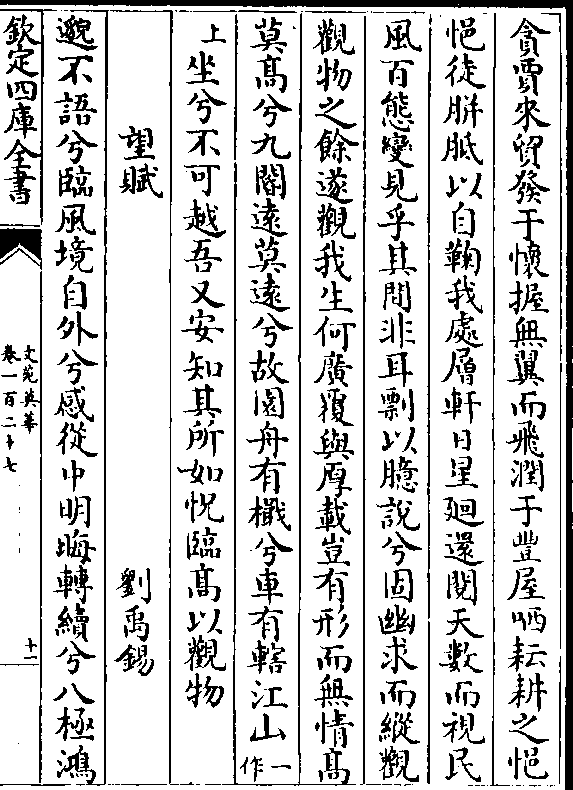 貪賈來貿發于懷握無翼而飛潤于豐屋哂耘耕之悒
悒徒胼胝以自鞠我處層軒日星廻還閱天數而視民
風百態變見乎其間非耳剽以臆說兮固幽求而縱觀
觀物之餘遂觀我生何廣覆與厚載豈有形而無情高
莫高兮九閽遠莫遠兮故園舟有檝兮車有轄江山一作
上坐兮不可越吾又安知其所如怳臨高以觀物
望賦 劉禹錫
邈不語兮臨風境自外兮感從中明晦轉續兮八極鴻
欽定四庫全書
文苑英華
卷一百二十七
十一